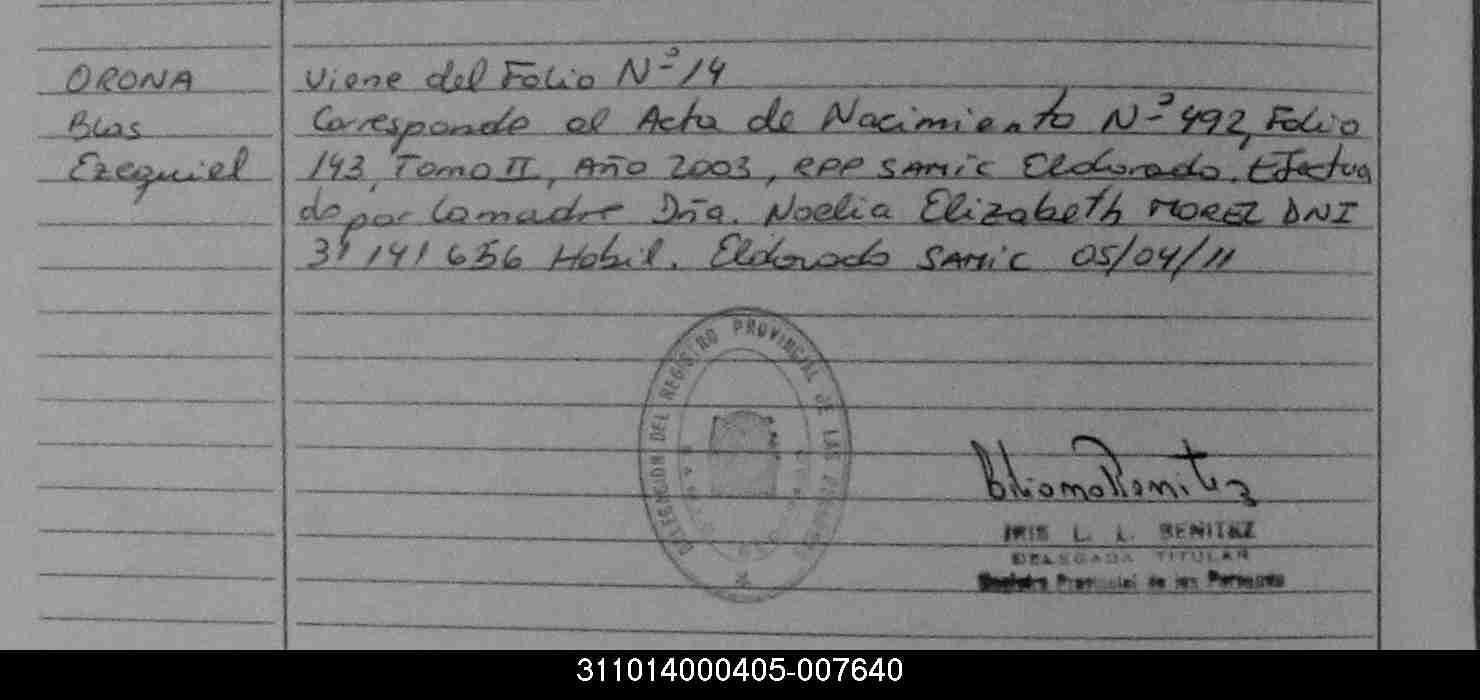 ORONA
Blas
Ezequiel
Viene del Folio Nº 14
Corresponde al Acta de Nacimiento Nº 492, Folio
143, Tomo II, Año 2003, RPP SAMIC Eldorado. Efectua
do por la madre Dña. Noelia Elizabeth MOREZ DNI
31141656 Habil. Eldorado SAMIC 05/04/11
DELEGACION DEL REGISTRO PROVINCIAL DE LAS PERSONAS
IRIS L. L. BENITEZ
DELEGADA TITULAR
Registro Provincial de las Personas
311014000405-007640